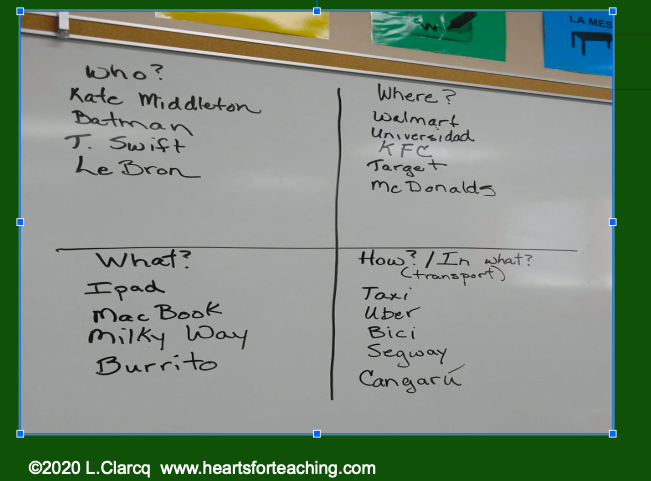 LA MES
Who?
Kate Middleton
Batman
T. Swift
LeBron
Where?
Walmart
Universidad
KFC
Target
McDonalds
What?
Ipad
MacBook
Milky Way
Burrito
How? / In what?
(transport)
Taxi
Uber
Bici
Segway
Cangarú
©2020 L.Clarcq www.heartsforteaching.com